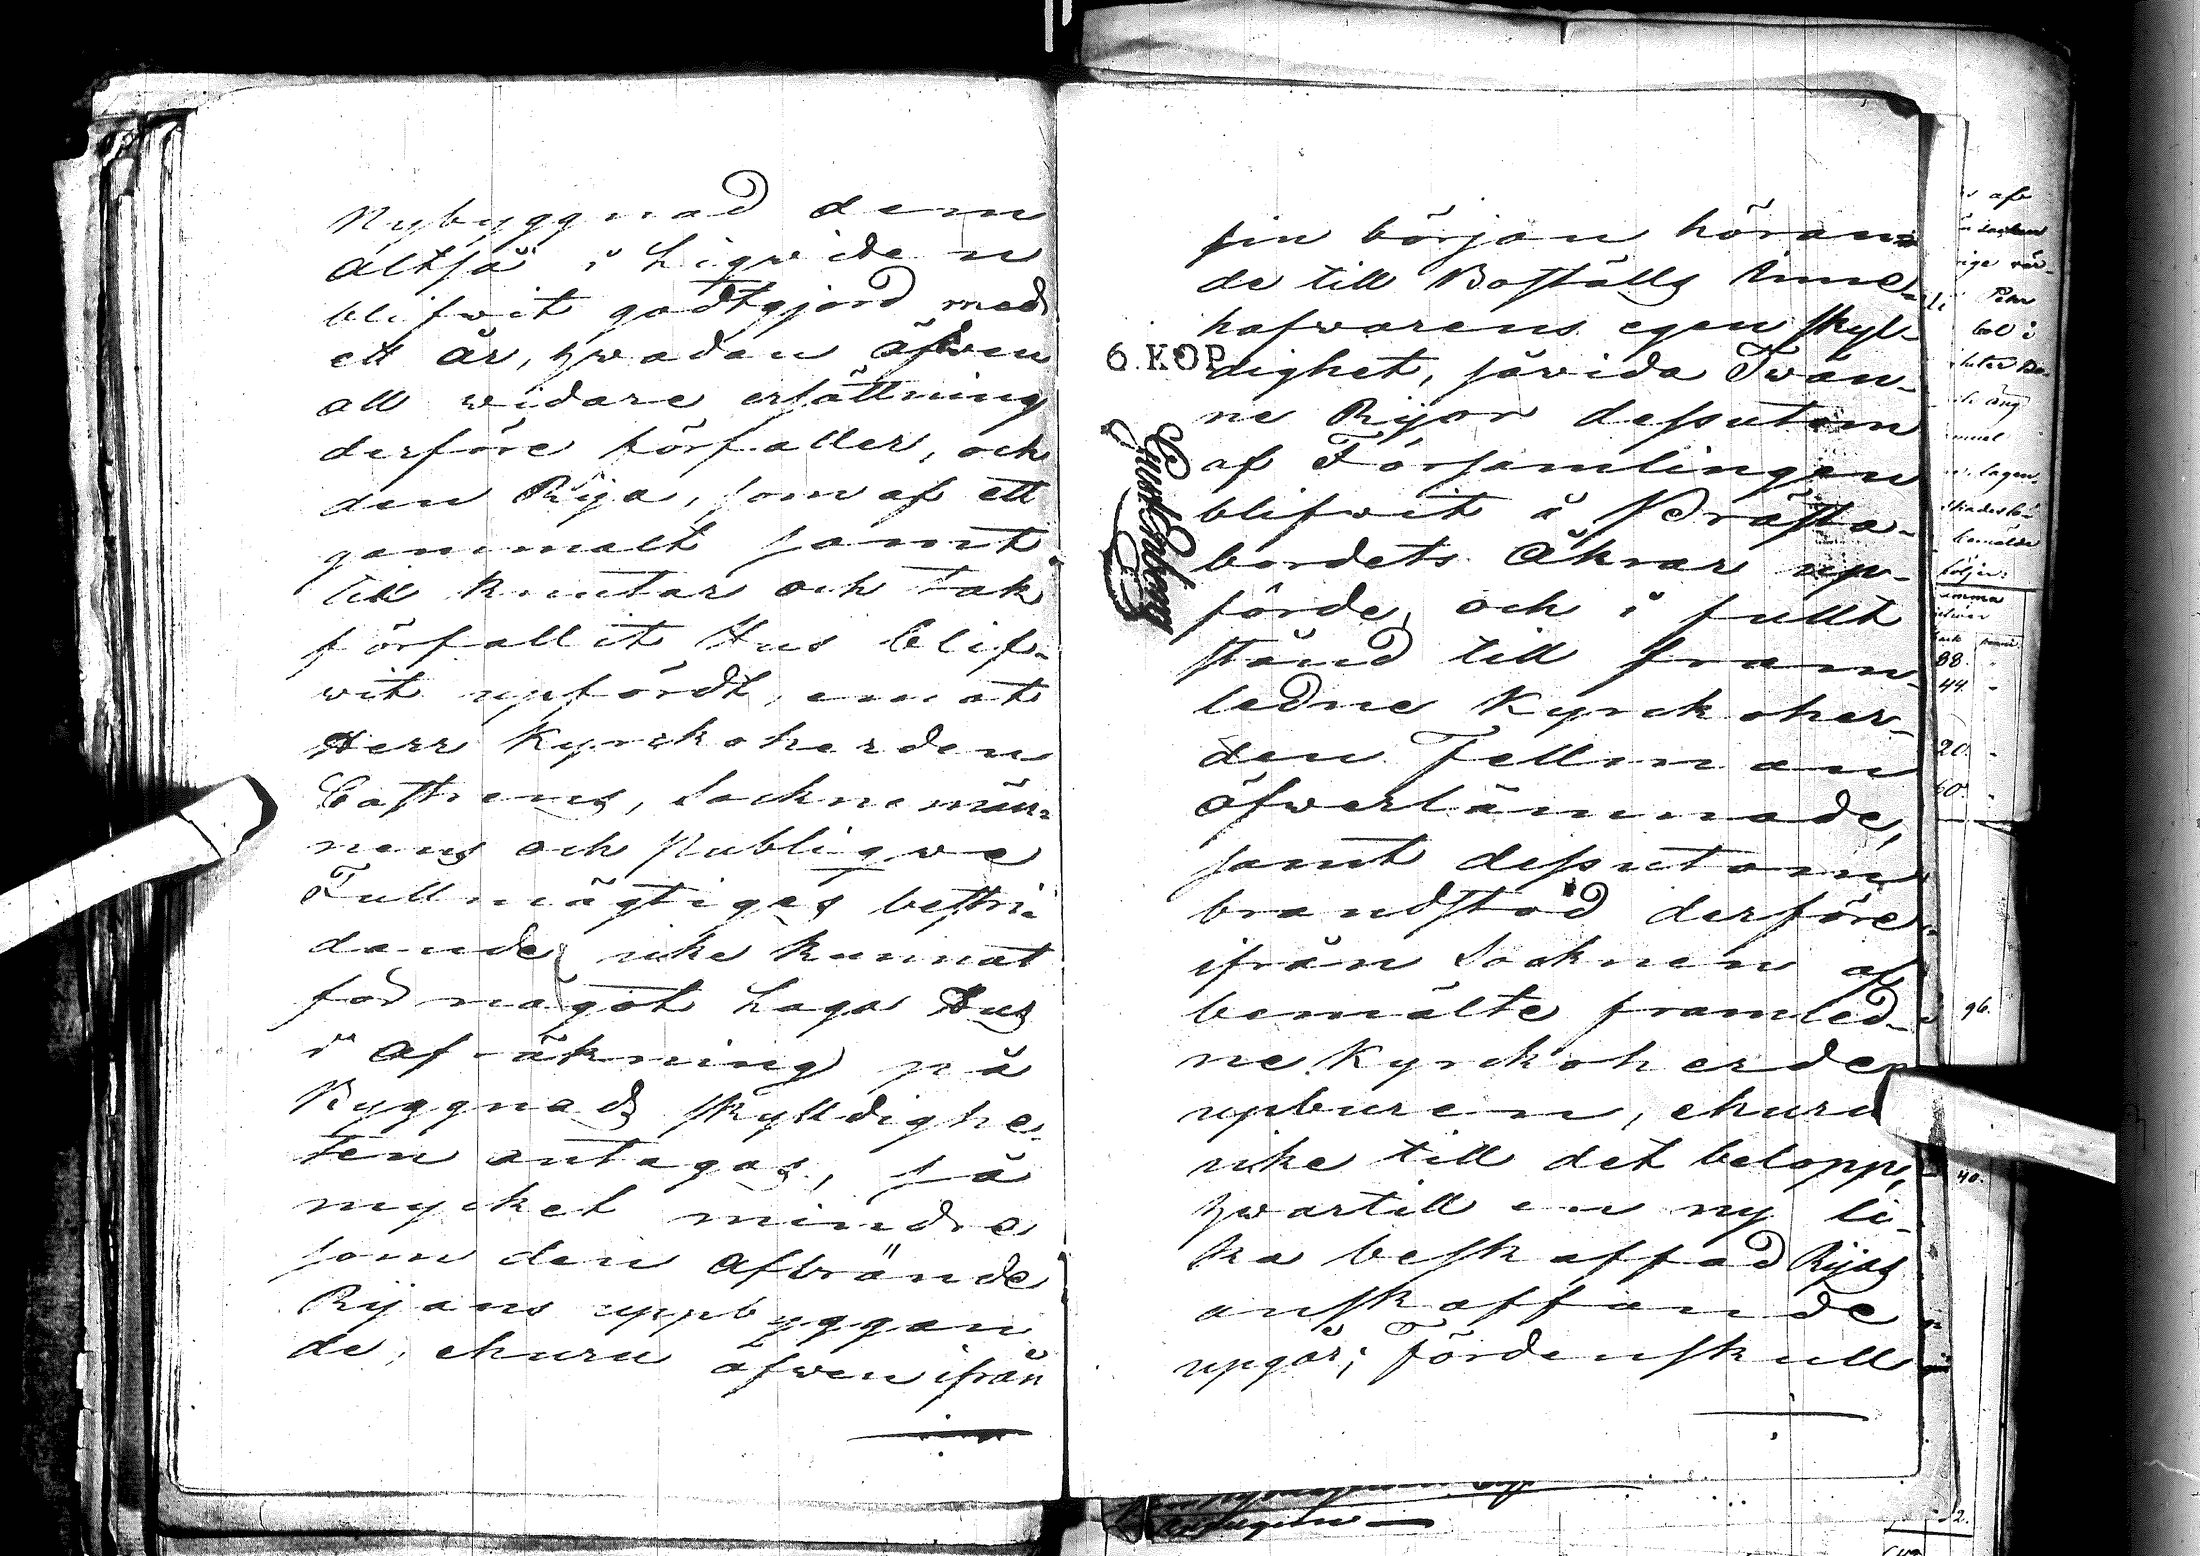 Nybyggnad dem
altså i Liqviden
blifwit godtgjord med
ett år, hwadan äfwen
all widare ersättning
derföre förfaller, och
den Rija, som af ett
gammalt samt
till knutar och tak
förfallit Hus blif-
wit upfördt, emot
Herr Kyrckoherden
Castrens, Sockne män-
nens och Publiqve
Fullmägtiges bestri-
dande, icke kunnat
för något Laga Hus
i Afräkning på
Byggnads skylldighe-
ten antagas, så
mycket mindre
som den afbrände
Rijans uppbyggan
de, ehuru äfwen ifrån
sin början höran-
de till Boställs Inne-
hafwarens egen skyl-
dighet, såvida Twän-
ne Rijor dessutom
af Församlingen
blifwit å Prästa-
bordets Åkrar up-
förde, och i fullt
stånd till fram-
ledne Kyrckoher-
den Fellman
öfwerlämnade,
samt dessutom
brandstod derföre
ifrån Socknen af
bemälte framled-
ne Kyrckoherden
upburen, ehuru
icke till det belopp,
hwartill en ny li-
ka beskaffad Rijas
anskaffande
upgår; Fördenskull
6. KOP.
96.
40.
88.
44.
20.
60.